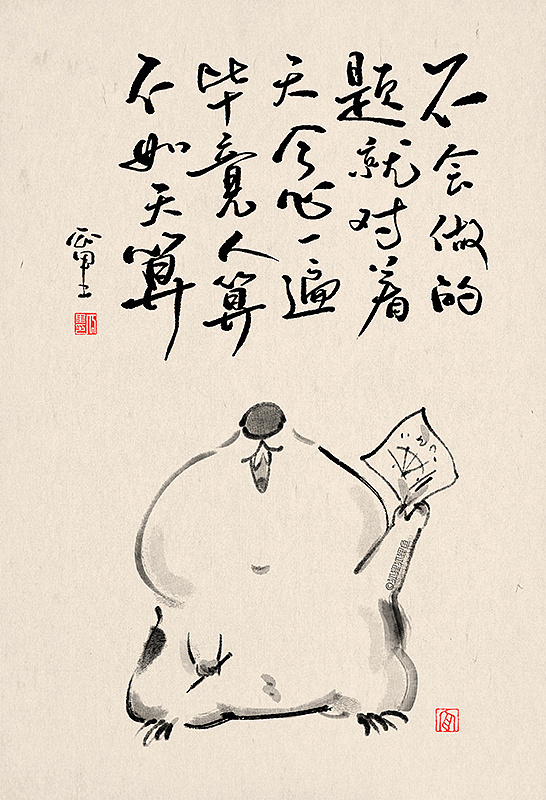 不会做的
题就对着
天念一遍
毕竟人算
不如天算